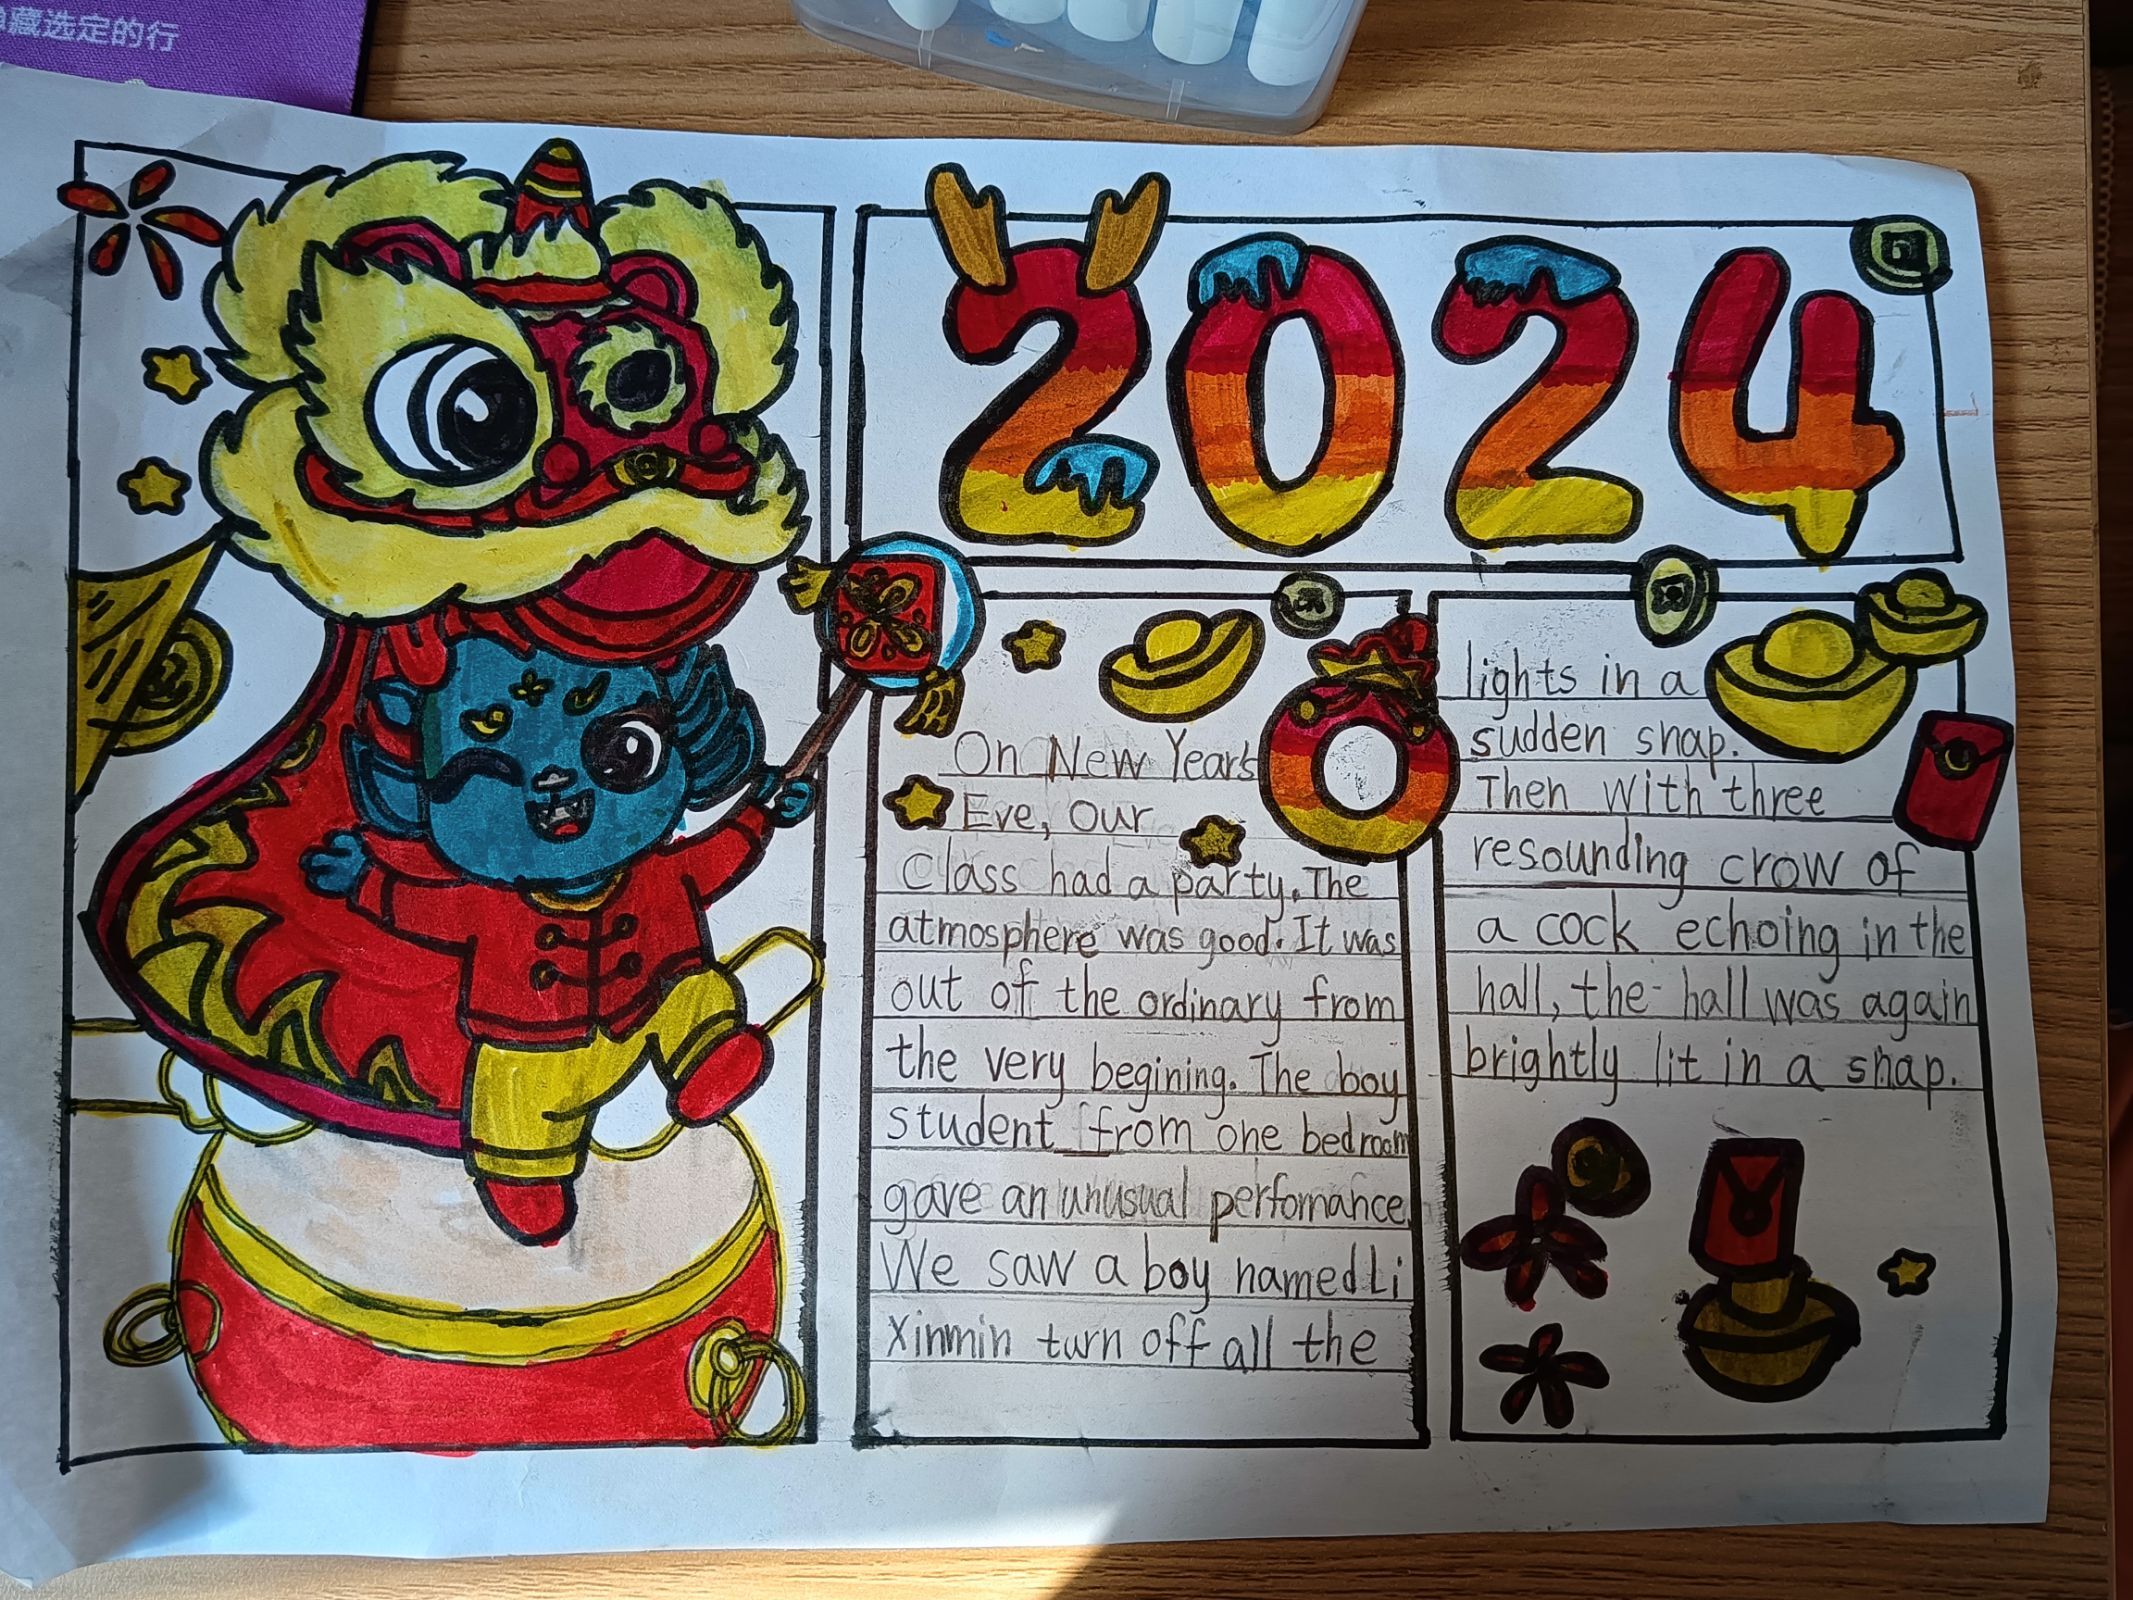 藏选定的行
2024
On New Year's
Eve, our
class had a party. The
atmosphere was good. It was
out of the ordinary from
the very begining. The boy
student from one bedroom
gave an unusual perfomance.
We saw a boy named Li
Xinmin turn off all the
lights in a
sudden snap.
Then with three
resounding crow of
a cock echoing in the
hall, the hall was again
brightly lit in a snap.